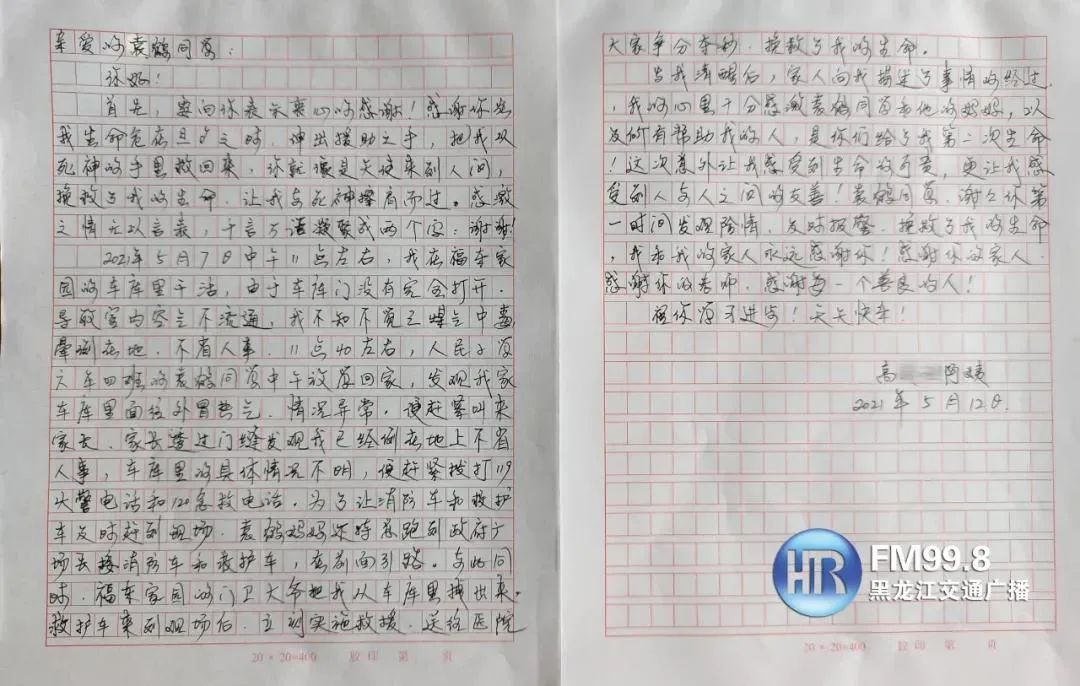 亲爱的袁鹤同学：
你好！
首先，要向你表示衷心的感谢！感谢你在
我生命危在旦夕之时，伸出援助之手，把我从
死神的手里救回来，你就像是天使来到人间，
挽救了我的生命，让我与死神擦肩而过。感激
之情无以言表，千言万语凝聚成两个字：谢谢！
2021年5月7日中午11点左右，我在福东家
园的车库里干活，由于车库门没有完全打开，
导致室内空气不流通，我不知不觉已煤气中毒
晕倒在地，不省人事。11点40左右，人民小学
六年四班的袁鹤同学中午放学回家，发现我家
车库里面往外冒热气，情况异常，便赶紧叫来
家长，家长透过门缝发现我已经倒在地上不省
人事，车库里的具体情况不明，便赶紧拨打119
火警电话和120急救电话。为了让消防车和救护
车及时赶到现场，袁鹤妈妈还特意跑到政府广
场去接消防车和救护车，在前面引路。与此同
时，福东家园的门卫大爷把我从车库里搀出来。
救护车来到现场后，立刻实施救援，送给医院
20×20=400 胶印 第 页
大家争分夺秒，挽救了我的生命。
当我清醒后，家人向我描述了事情的经过
，我的心里十分感激袁鹤同学和他的妈妈，以
及所有帮助我的人，是你们给了我第二次生命
！这次意外让我感受到生命的可贵，更让我感
受到人与人之间的友善！袁鹤同学，谢谢你第
一时间发现险情，及时报警，挽救了我的生命
，我和我的家人永远感谢你！感谢你的家人，
感谢你的老师，感谢每一个善良的人！
祝你学习进步！天天快乐！
高 阿姨
2021年5月12日
20×20=400 胶印 第 页
HR FM99.8
黑龙江交通广播